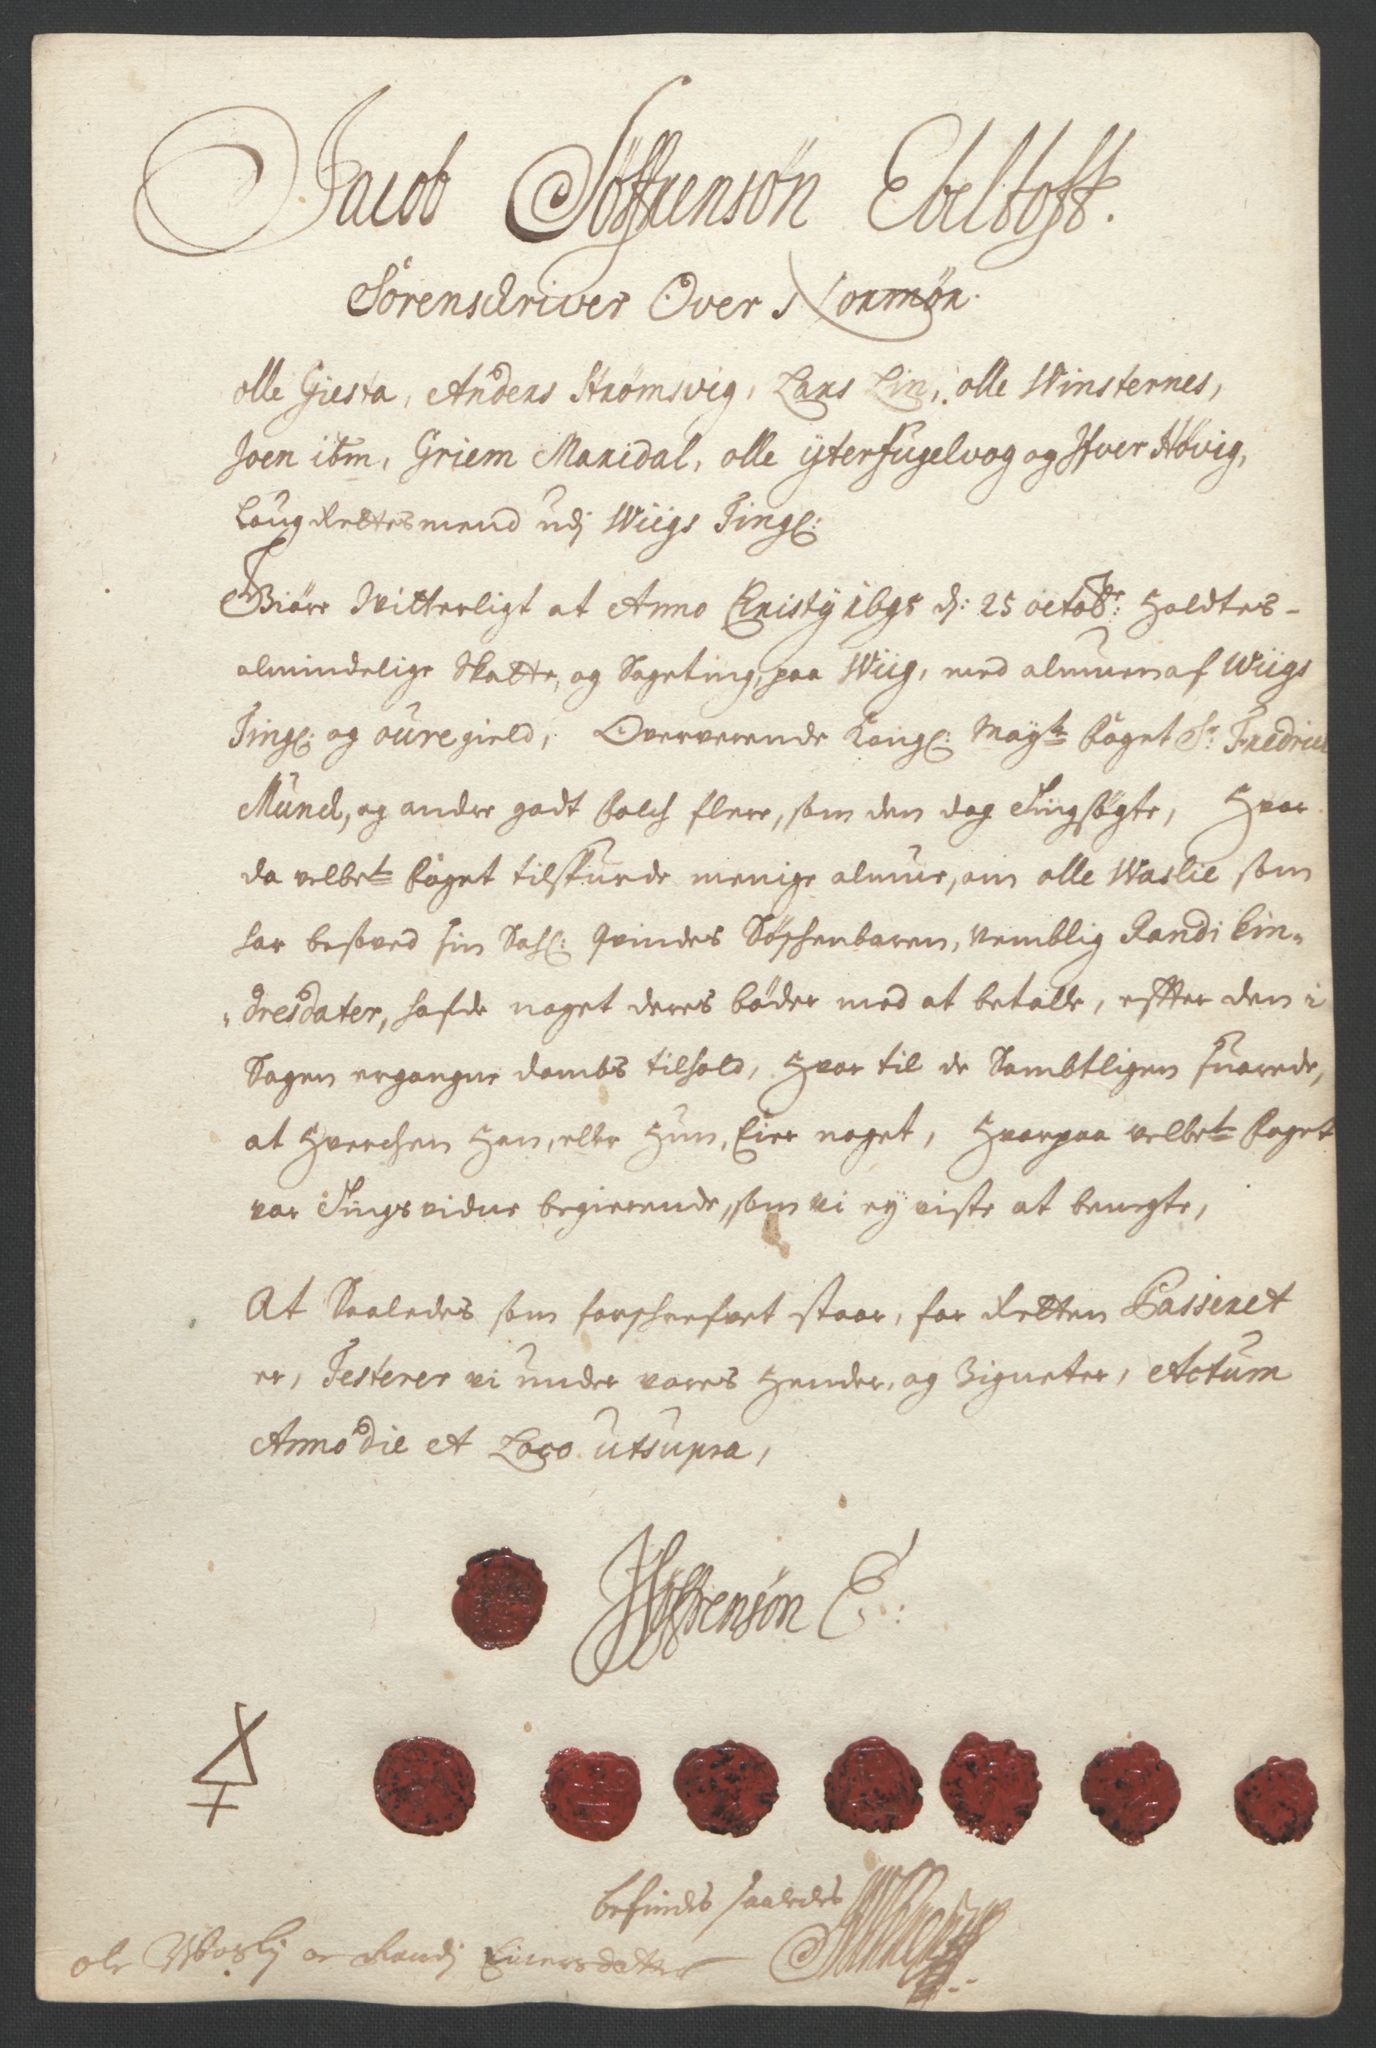 Jacob Söffrensøn Ebeltoft.
Sorenschriver Over Normør.
olle Giesta, Anders Strømsvig, Lars Lin, olle Winsternes,
Joen ibm, Griem Maridal, olle ÿterfugelvog og Ifver Høvig,
Laug Rettesmend udj Wiigs Tingl:
Giöre Witterligt at Anno Christÿ 1695 dj: 25 octobr: Holdtes
almindelige Skatte, og Sageting, paa Wiig, med almuen af Wiigs
Tingl: og öuregield, Oververende Kongl: Mayts foget Sr Fredrich
Munch, og andre godt folch flere, som den dag Tingsögte, Hvor
da velbete foget tilspurde menige almue, om olle Waslie som
har besoved sin Sahl: Qvindes Söschenbaren, Nemblig Randi Ein-
dresdater, hafde noget deres böder med at betalle, effter den i
Sagen ergangne dombs tilhold, Hvor til de Sambtligen suarede,
at Hverchen Han, eller Hun, Eier noget, Hvorpaa velbete foget
var Tingsvidne begierende, som vi ey viste at benegte,
At Saaledes som forschrefvet staar, for Retten Passeret
er, Testerer vi under vores Hender, og Zigneter, Actum
Anno die et Loco utsupra,
JSöffrensøn E:
befindes saaledes
ole Woslj oc Randj Einersdatter